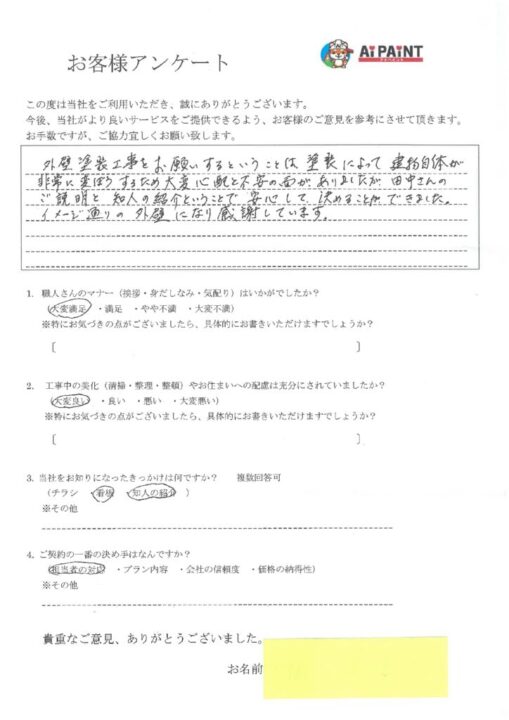 AI PAINT
アイペイント
お客様アンケート
この度は当社をご利用いただき、誠にありがとうございます。
今後、当社がより良いサービスをご提供できるよう、お客様のご意見を参考にさせて頂きます。
お手数ですが、ご協力宜しくお願い致します。
外壁塗装工事をお願いするということは塗装によって建物自体が
非常に変ぼうするため大変心配と不安の面がありましたが田中さんの
ご説明と知人の紹介ということで安心して決めることができました。
イメージ通りの外壁になり感謝しています。
1. 職人さんのマナー（挨拶・身だしなみ・気配り）はいかがでしたか？
（大変満足 ・満足 ・やや不満 ・大変不満）
※特にお気づきの点がございましたら、具体的にお書きいただけますでしょうか？
〔 〕
2. 工事中の美化（清掃・整理・整頓）やお住まいへの配慮は充分にされていましたか？
（大変良い ・良い ・悪い ・大変悪い）
※特にお気づきの点がございましたら、具体的にお書きいただけますでしょうか？
〔 〕
3. 当社をお知りになったきっかけは何ですか？ 複数回答可
（チラシ ・看板 ・知人の紹介 ）
※その他
4. ご契約の一番の決め手はなんですか？
（担当者の対応 ・プラン内容 ・会社の信頼度 ・価格の納得性）
※その他
貴重なご意見、ありがとうございました。
お名前